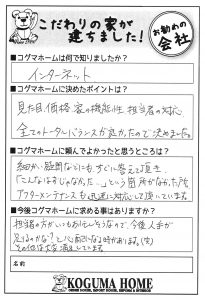 こだわりの家が
建ちました!
お勧めの
会社
■コグマホームは何で知りましたか?
インターネット
■コグマホームに決めたポイントは?
見た目、価格、家の機能性、担当者の対応、
全てのトータルバランスが良かったので決めました。
■コグマホームに頼んでよかったと思うところは?
細かい疑問などにも、すぐに答えて頂き
こんなはずじゃなかった…という箇所がなかった所
アフターメンテナンスも迅速に対応して頂いています。
■今後コグマホームに求める事はありますか?
担当の方がいつもお忙しそうなので、今後人手が
足りるのかな?と心配になる時があります。(笑)
その他は大変満足しています。
名前
KOGUMA HOME